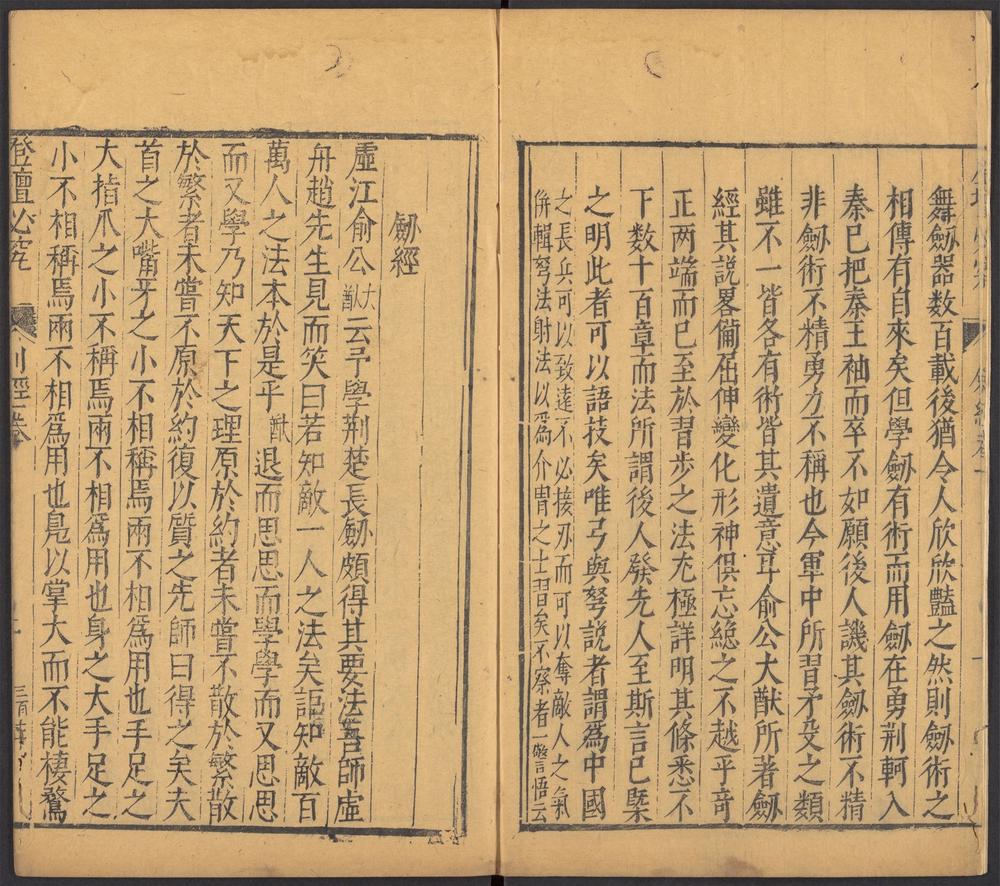 舞劔器数百載後猶令人欣欣豔之然則劔術之
相傳有自來矣但學劔有術而用劔在勇荆軻入
秦已把秦王袖而卒不如願後人譏其劔術不精
非劔術不精勇力不稱也今軍中所習矛殳之類
雖不一皆各有術皆其遺意耳俞公大猷所著劔
經其説畧備屈伸變化形神俱忘總之不越乎竒
正两端而已至於習步之法尤極詳明其條悉不
下数十百章而法所謂後人發先人至斯言已槩
之明此者可以語技矣唯弓與弩説者謂爲中國
之長兵可以致遠不必接刃而可以奪敵人之氣
併輯弩法射法以爲介胄之士習矣不察者一警悟云
劔經
虛江俞公大猷云予學荆楚長劔頗得其要法吾師虛
舟趙先生見而笑曰若知敵一人之法矣詎知敵百
萬人之法本於是乎猷退而思思而學學而又思思
而又學乃知天下之理原於約者未嘗不散於繁散
於繁者未嘗不原於約復以質之先師曰得之矣夫
首之大嘴牙之小不相稱焉兩不相爲用也手足之
大指爪之小不稱焉兩不相爲用也身之大手足之
小不相稱焉兩不相爲用也鳬以掌大而不能棲鶩
登壇必究
劍經卷